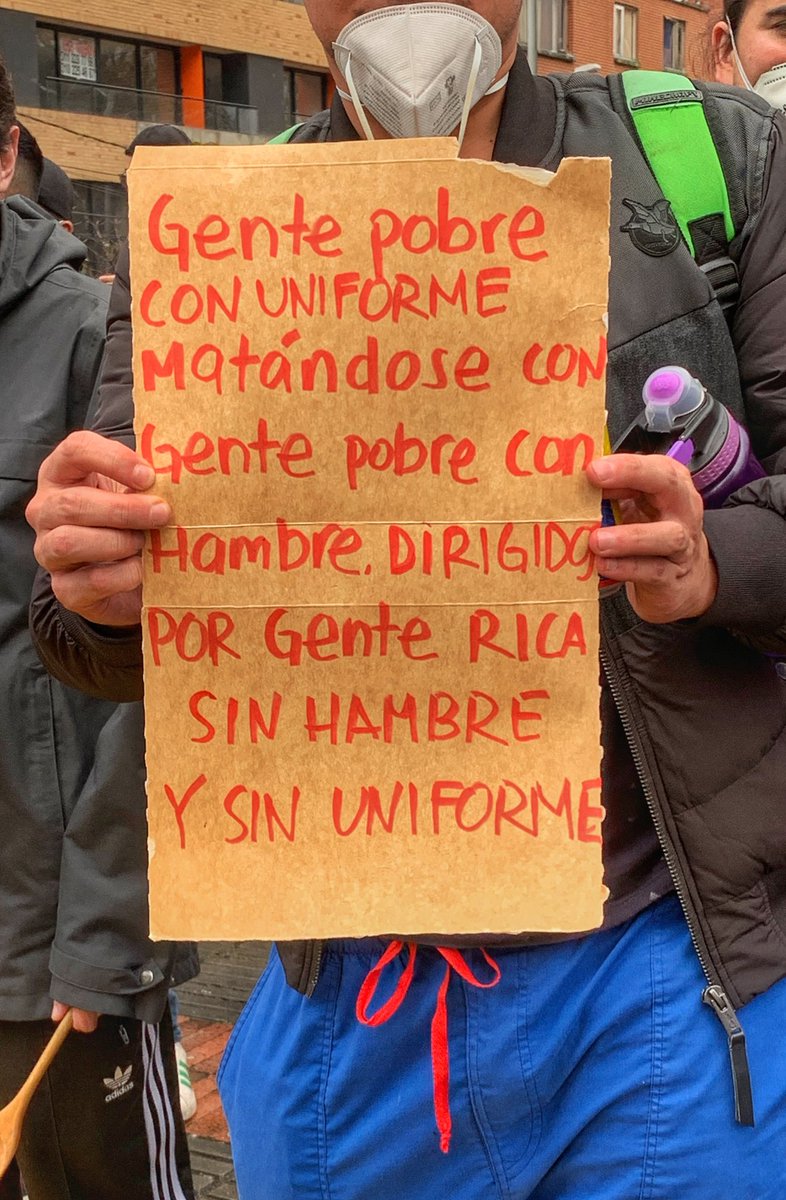 Gente pobre
CON UNIFORME
Matándose CON
Gente pobre con
Hambre. DIRIGIDOS
POR Gente RICA
SIN HAMBRE
Y SIN UNIFORME
adidas